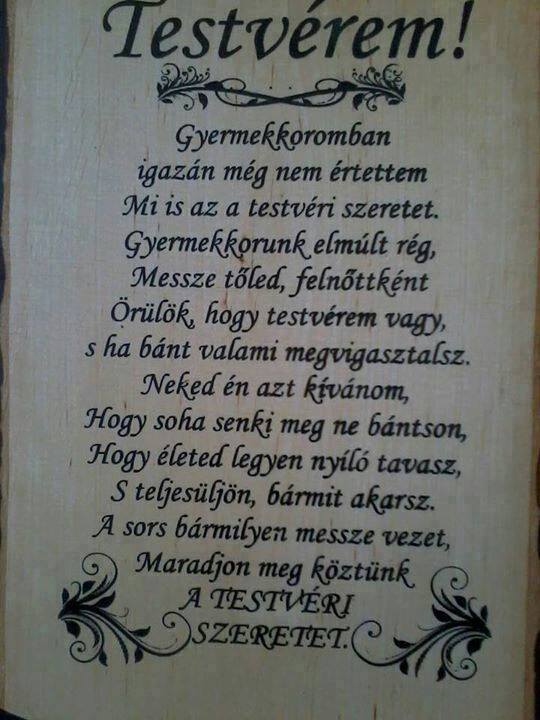 Testvérem!
Gyermekkoromban
igazán még nem értettem
Mi is az a testvéri szeretet.
Gyermekkorunk elmúlt rég,
Messze tőled, felnőttként
Örülök, hogy testvérem vagy,
s ha bánt valami megvigasztalsz.
Neked én azt kívánom,
Hogy soha senki meg ne bántson,
Hogy életed legyen nyíló tavasz,
S teljesüljön, bármit akarsz.
A sors bármilyen messze vezet,
Maradjon meg köztünk
A TESTVÉRI
SZERETET.